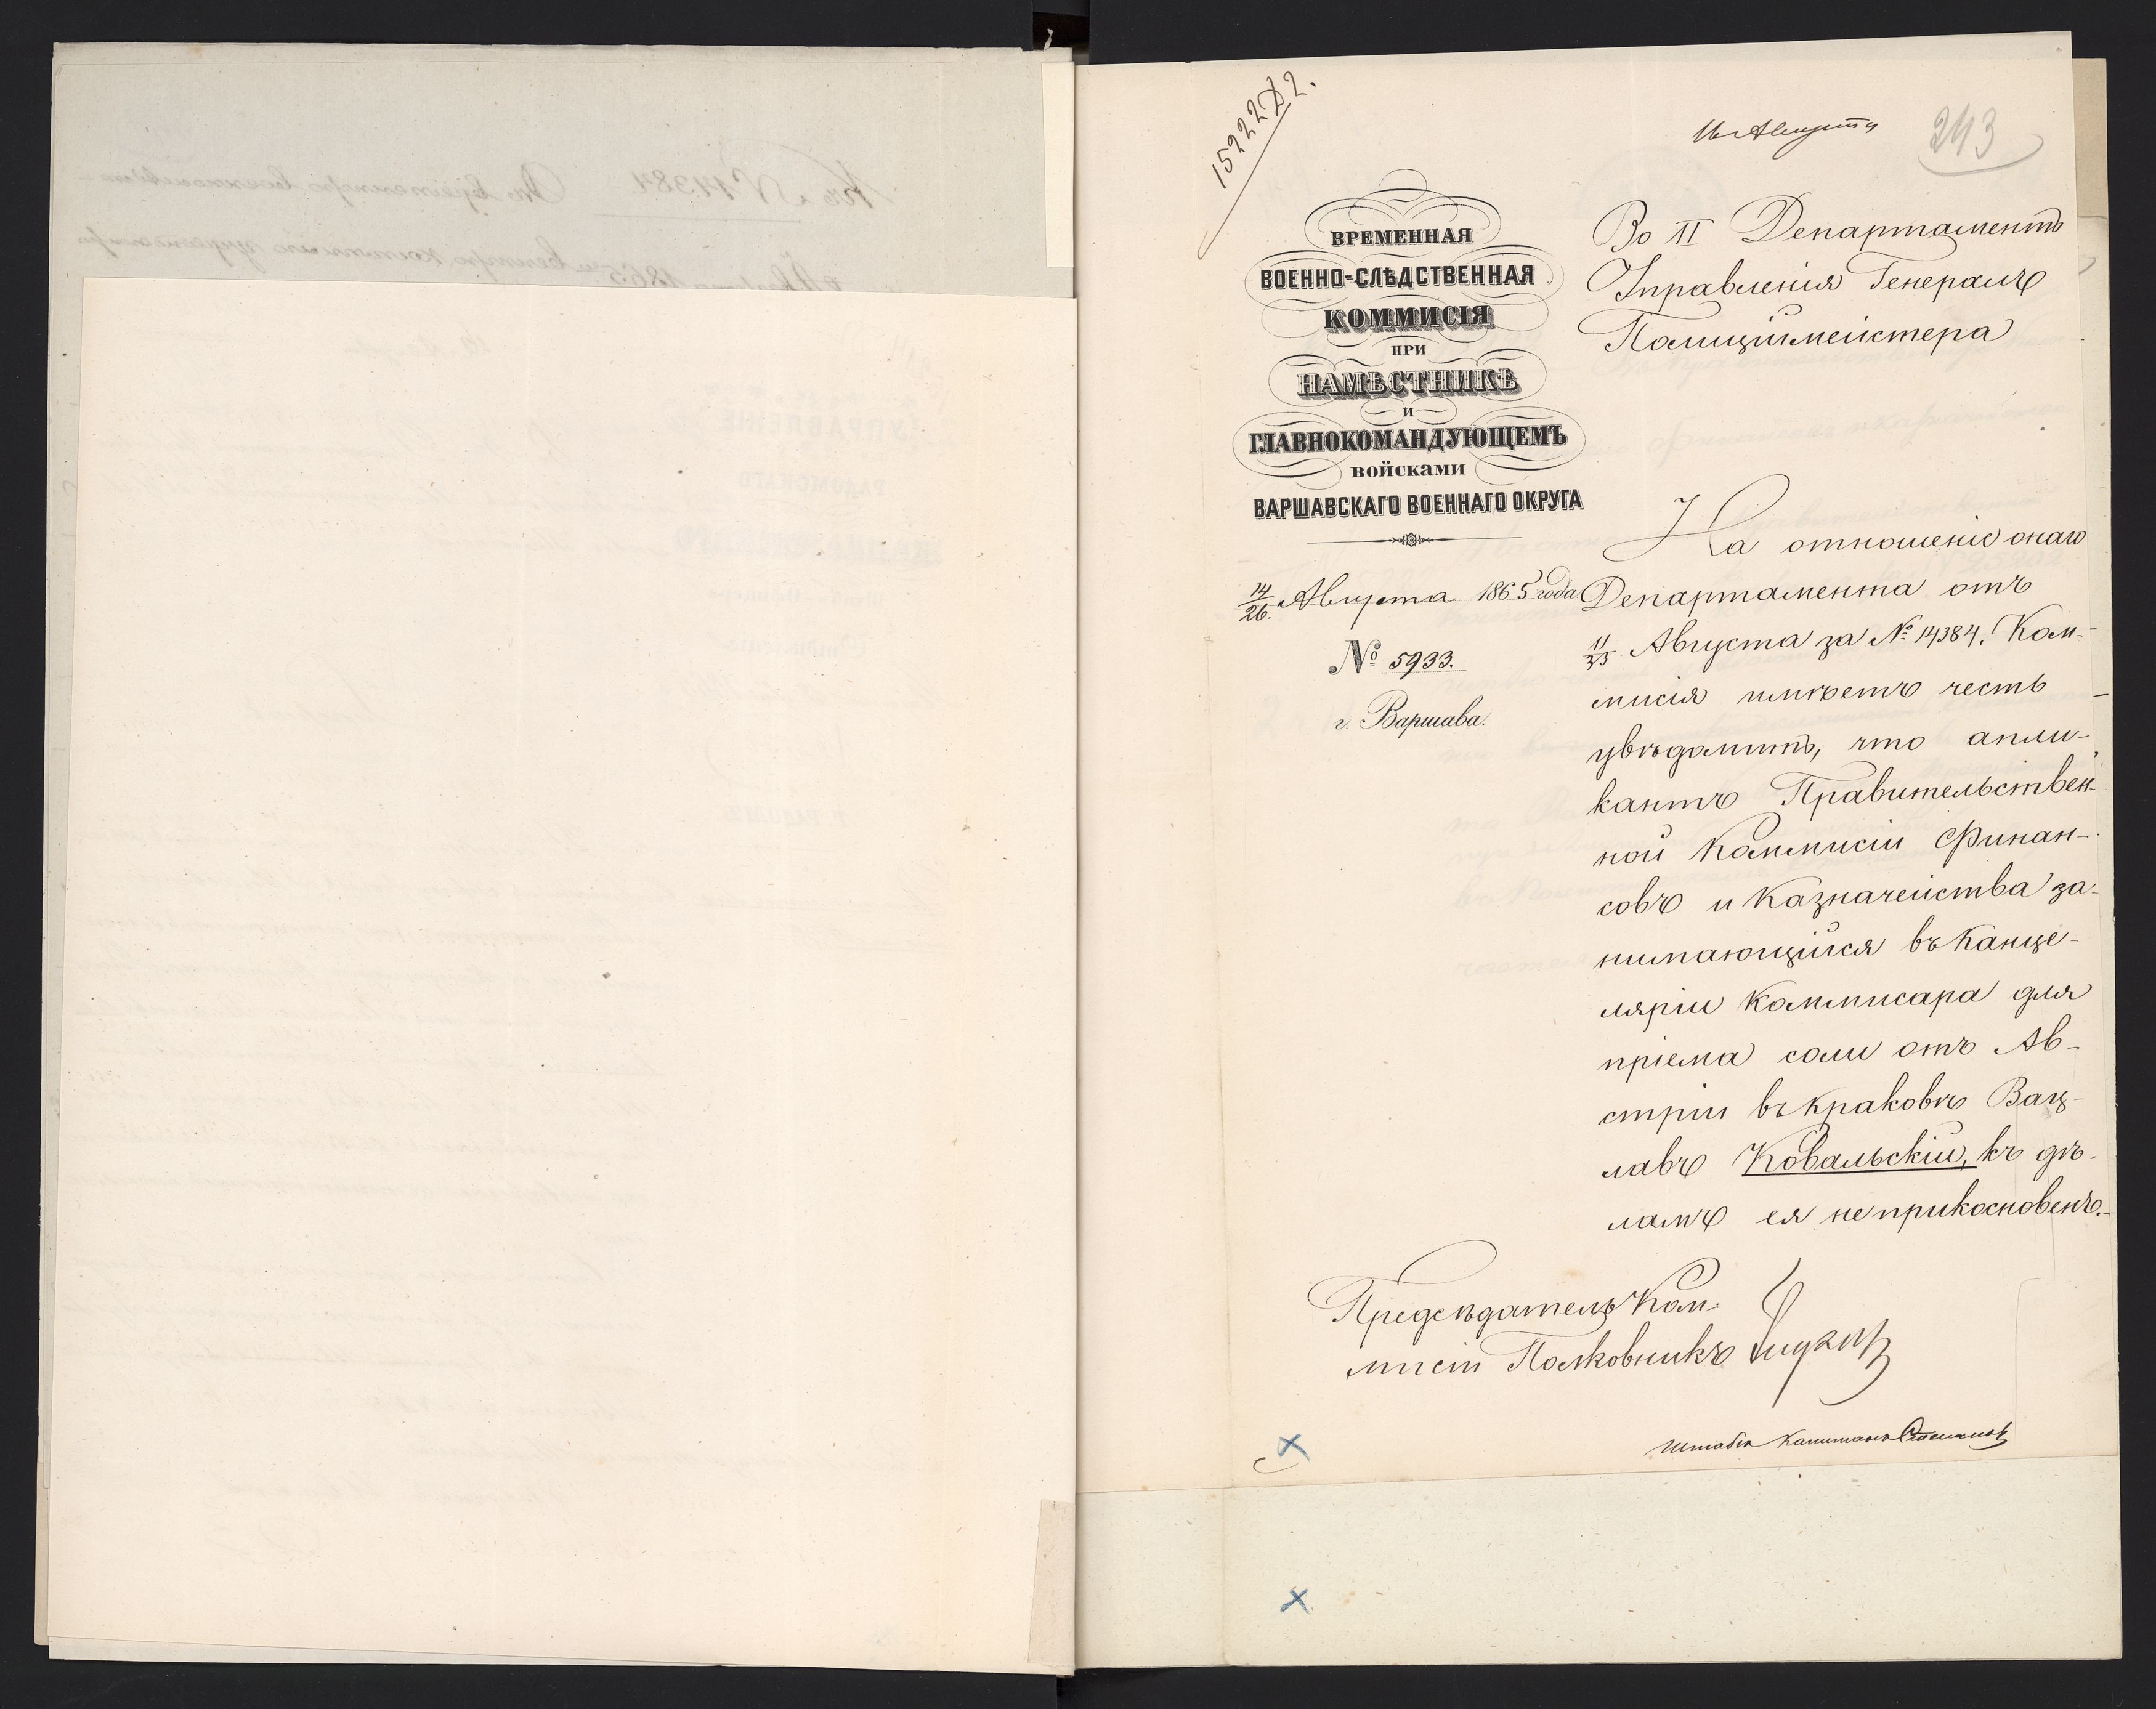 15222 Д 2.
16 Августа
243
ВРЕМЕННАЯ
ВОЕННО-СЛѢДСТВЕННАЯ
КОММИСІЯ
ПРИ
НАМѢСТНИКѢ
И
ГЛАВНОКОМАНДУЮЩЕМЪ
ВОЙСКАМИ
ВАРШАВСКАГО ВОЕННАГО ОКРУГА
14/26. Августа 1865 года
№ 5933.
г. Варшава.
Во II Департаментъ
Управленія Генералъ
Полиціймейстера
На отношеніе онаго
Департамента отъ
11/23 Августа за № 14384. Ком-
мисія имѣетъ честь
увѣдомить, что апли-
кантъ Правительствен-
ной Коммисіи Финан-
совъ и Казначейства за-
нимающійся въ Канце-
ляріи Коммисара для
пріема соли отъ Ав-
стріи въ Краковѣ Вац-
лавъ Ковальскій, къ дѣ-
ламъ ея не прикосновенъ.
Предсѣдатель Ком-
мисіи Полковникъ
Штабсъ Капитанъ